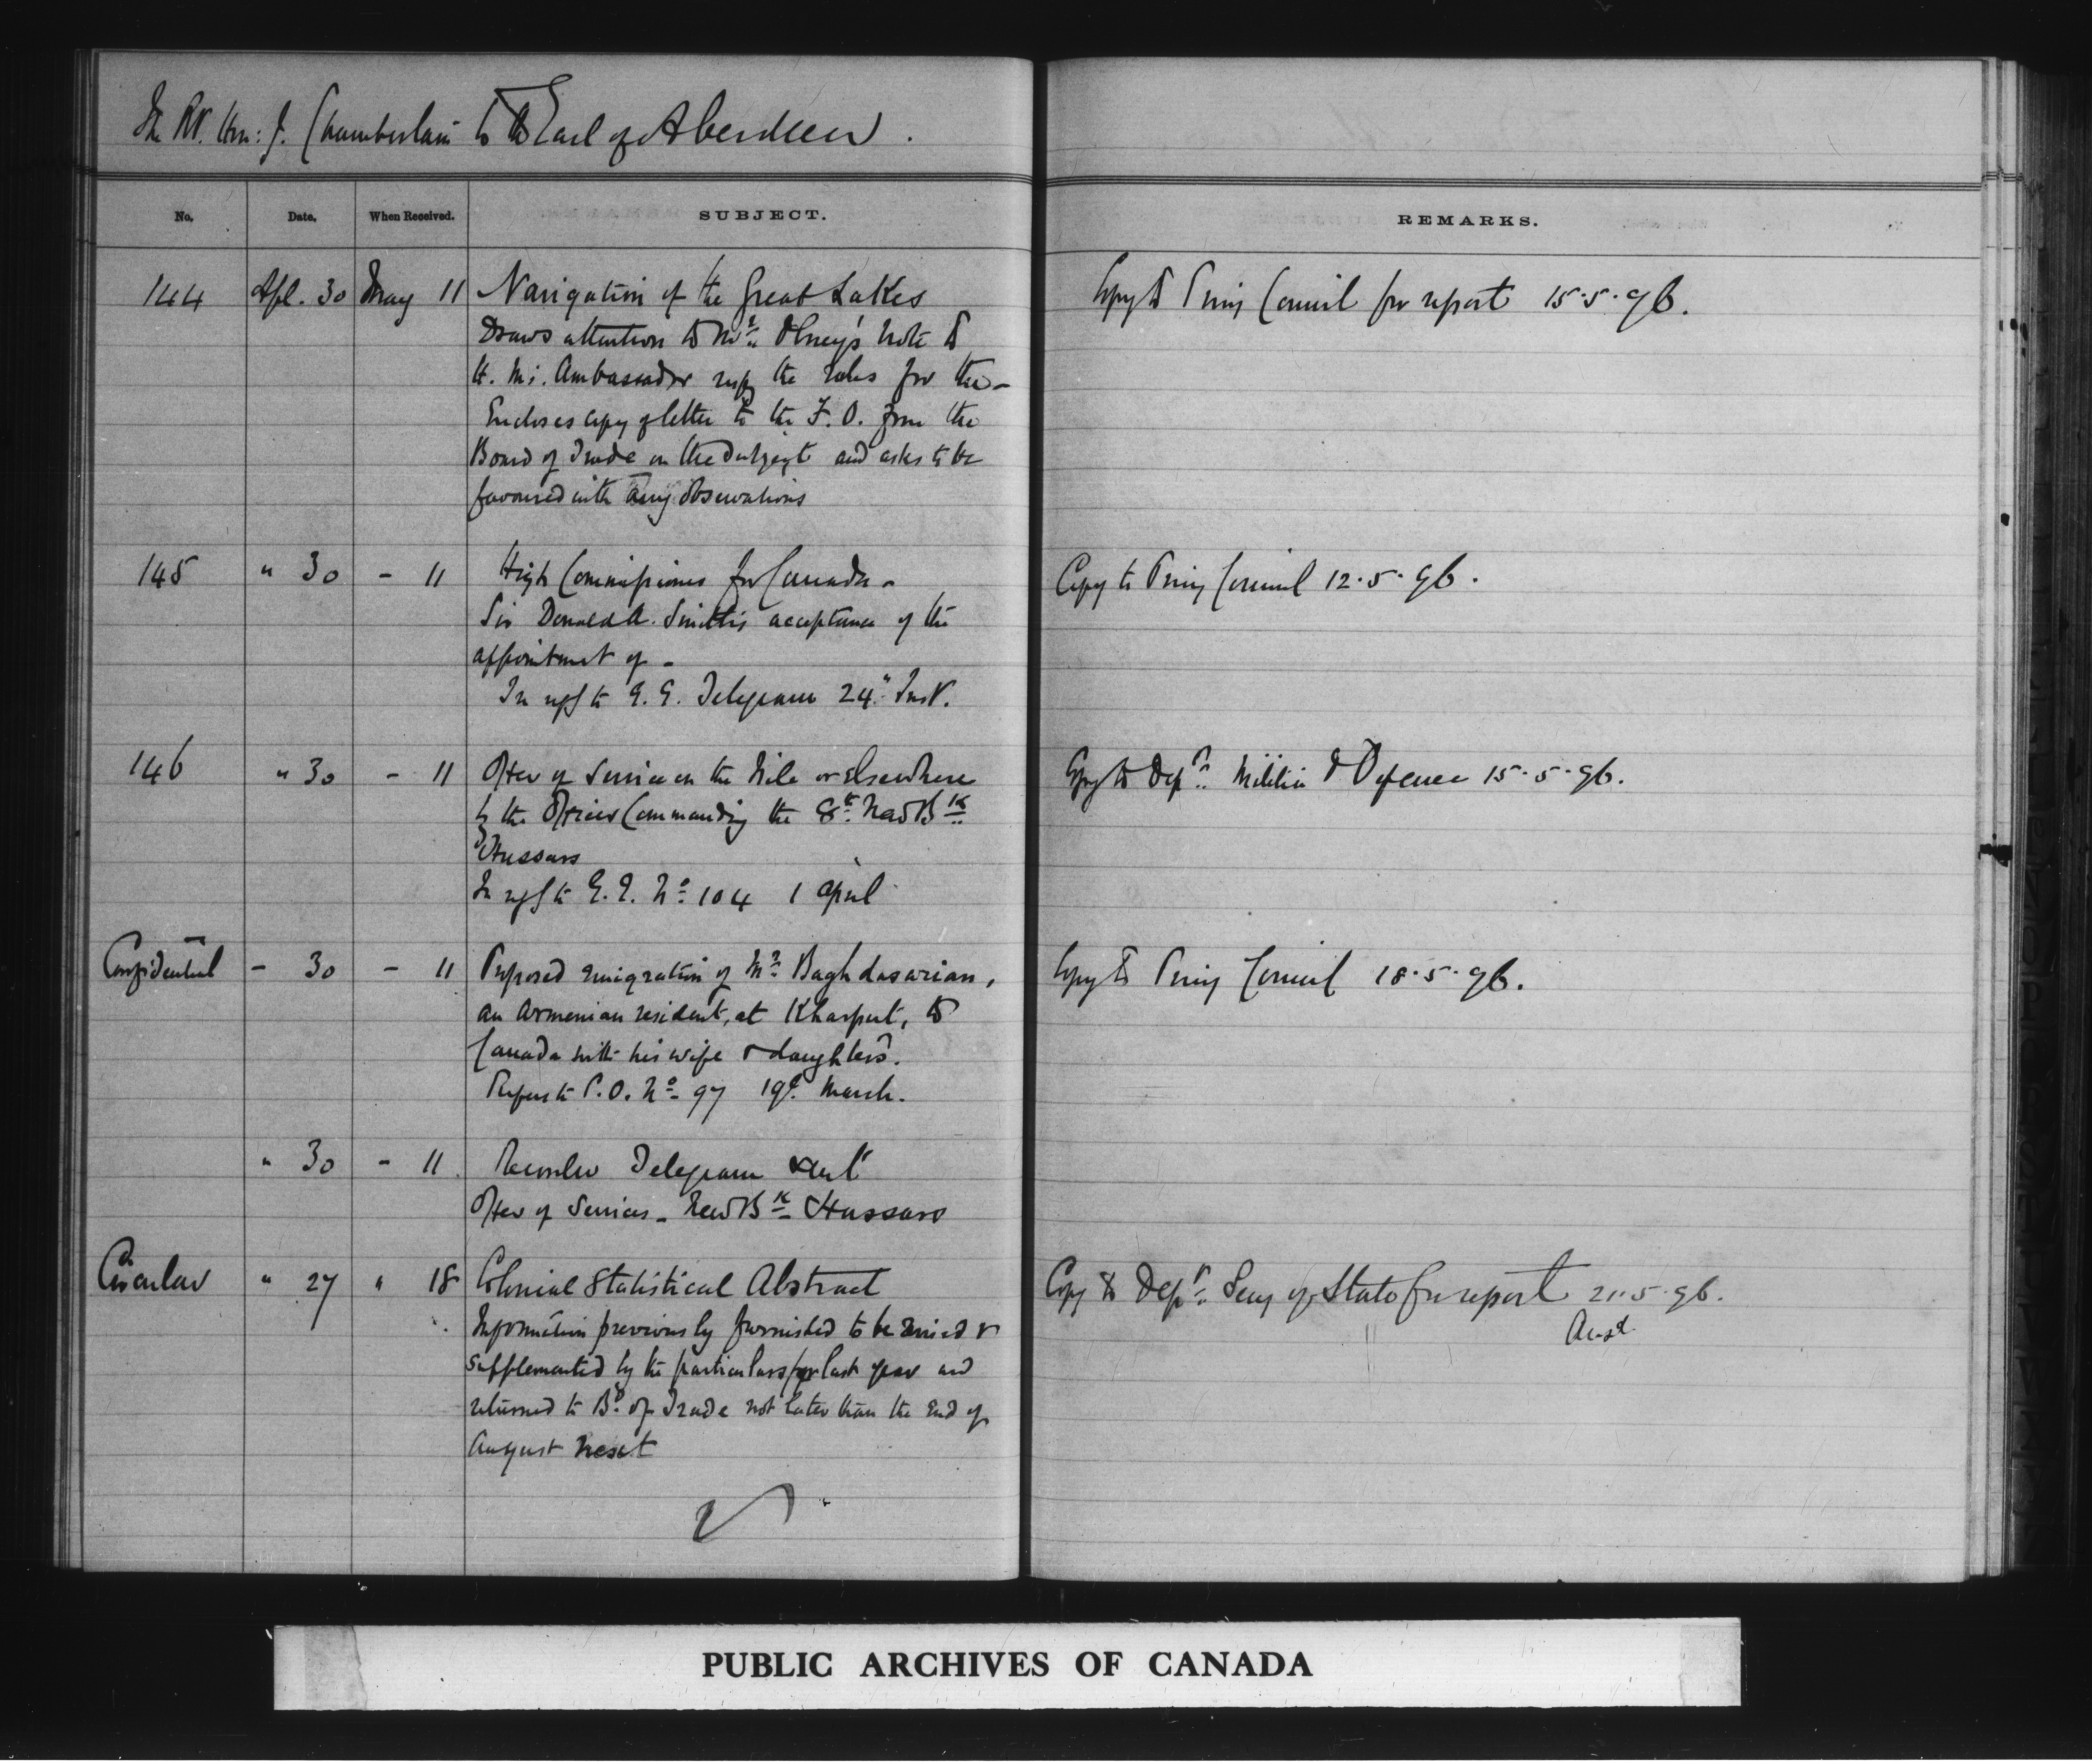 The Rt. Hon: J. Chamberlain to the Earl of Aberdeen.
No. Date. When Received. SUBJECT. REMARKS.
144 Apl. 30 May 11 Navigation of the Great Lakes Copy to Privy Council for report 15.5.96.
Draws attention to Mr. Olney's note to
H. M's. Ambassador respg the rules for the -
Encloses copy of letter to the F. O. from the
Board of Trade on the subject and asks to be
favoured with any observations
145 " 30 - 11 High Commissioner for Canada - Copy to Privy Council 12.5.96.
Sir Donald A. Smith's acceptance of the
appointment of -
In reply to G. G. Telegram 24" Inst.
146 " 30 - 11 Offer of Service on the Nile or Elsewhere Copy to Dept. Militia & Defence 15.5.96.
by the Officer Commanding the 8th New Bk
Hussars
In reply to G. G. No 104 1 April
Confidential - 30 - 11 Proposed emigration of Mr Baghdasarian, Copy to Privy Council 18.5.96.
an Armenian resident, at Kharput, to
Canada with his wife & daughters.
Refers to P.O. No 97 19" March.
" 30 - 11 Recorder Telegram sent
Offer of Services - New Bk Hussars
Circular " 27 " 18 Colonial Statistical Abstract Copy to Dept. Secy of State for report 21.5.96.
Ansd
Information previously furnished to be revised &
supplemented by the particulars for last year and
returned to Bd. of Trade not later than the End of
August next
PUBLIC ARCHIVES OF CANADA